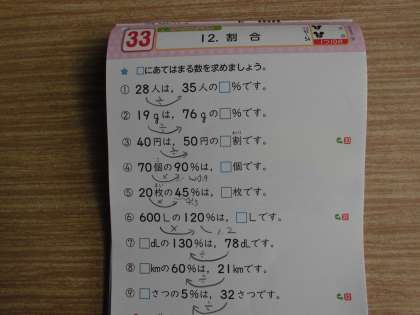 33
12. 割合
1つ10点
★ □にあてはまる数を求めましょう。
① 28人は，35人の□%です。
② 19gは，76gの□%です。
③ 40円は，50円の□割です。
④ 70個の90%は，□個です。
⑤ 20枚の45%は，□枚です。
⑥ 600Lの120%は，□Lです。
⑦ □dLの130%は，78dLです。
⑧ □kmの60%は，21kmです。
⑨ □さつの5%は，32さつです。